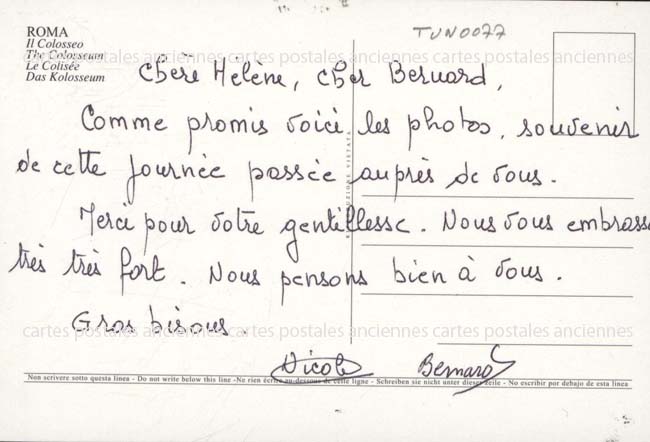 ROMA
Il Colosseo
The Colosseum
Le Colisée
Das Kolosseum
TUN0077
cartes postales anciennes cartes postales anciennes cartes postales anciennes
Chère Hélène, cher Bernard,
Comme promis voici les photos, souvenir
de cette journée passée auprès de vous.
Merci pour votre gentillesse. Nous vous embrasse
très très fort. Nous pensons bien à vous.
Gros bisous.
cartes postales anciennes cartes postales anciennes cartes postales anciennes
Nicole Bernard
Non scrivere sotto questa linea - Do not write below this line - Ne rien écrire au-dessous de cette ligne - Schreiben sie nicht unter dieser zeile - No escribir por debajo de esta linea